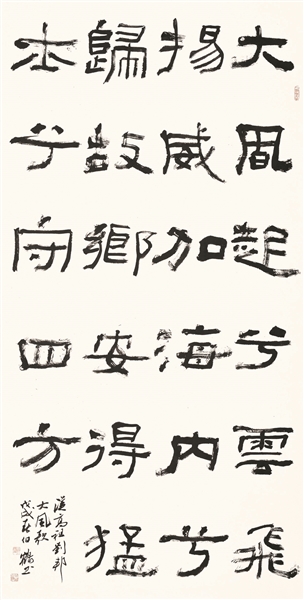 大風起兮雲飛
揚威加海内兮
歸故鄉安得猛
士兮守四方
漢高祖劉邦
大風歌
戊戌春伯鶴書